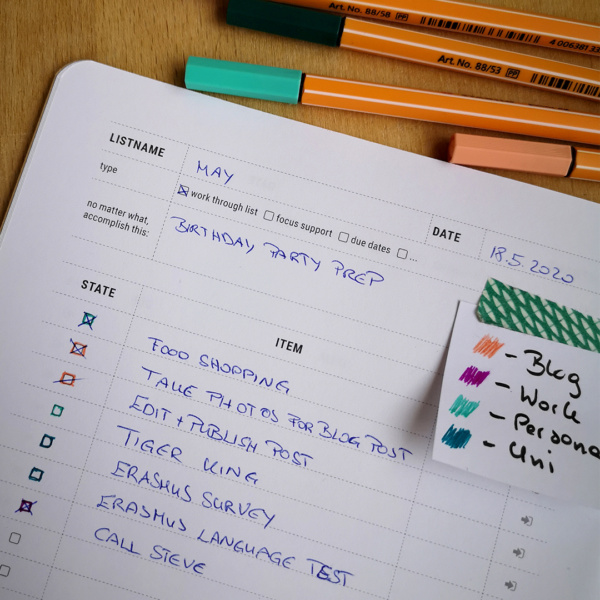 Art. No. 88/58
4 006381 33
Art. No. 88/53
LISTNAME
MAY
type
work through list focus support due dates ...
DATE
18.5.2020
no matter what,
accomplish this:
BIRTHDAY PARTY PREP
STATE
ITEM
FOOD SHOPPING
TAKE PHOTOS FOR BLOG POST
EDIT + PUBLISH POST
TIGER KING
ERASMUS SURVEY
ERASMUS LANGUAGE TEST
CALL STEVE
- Blog
- Work
- Persona
- Uni